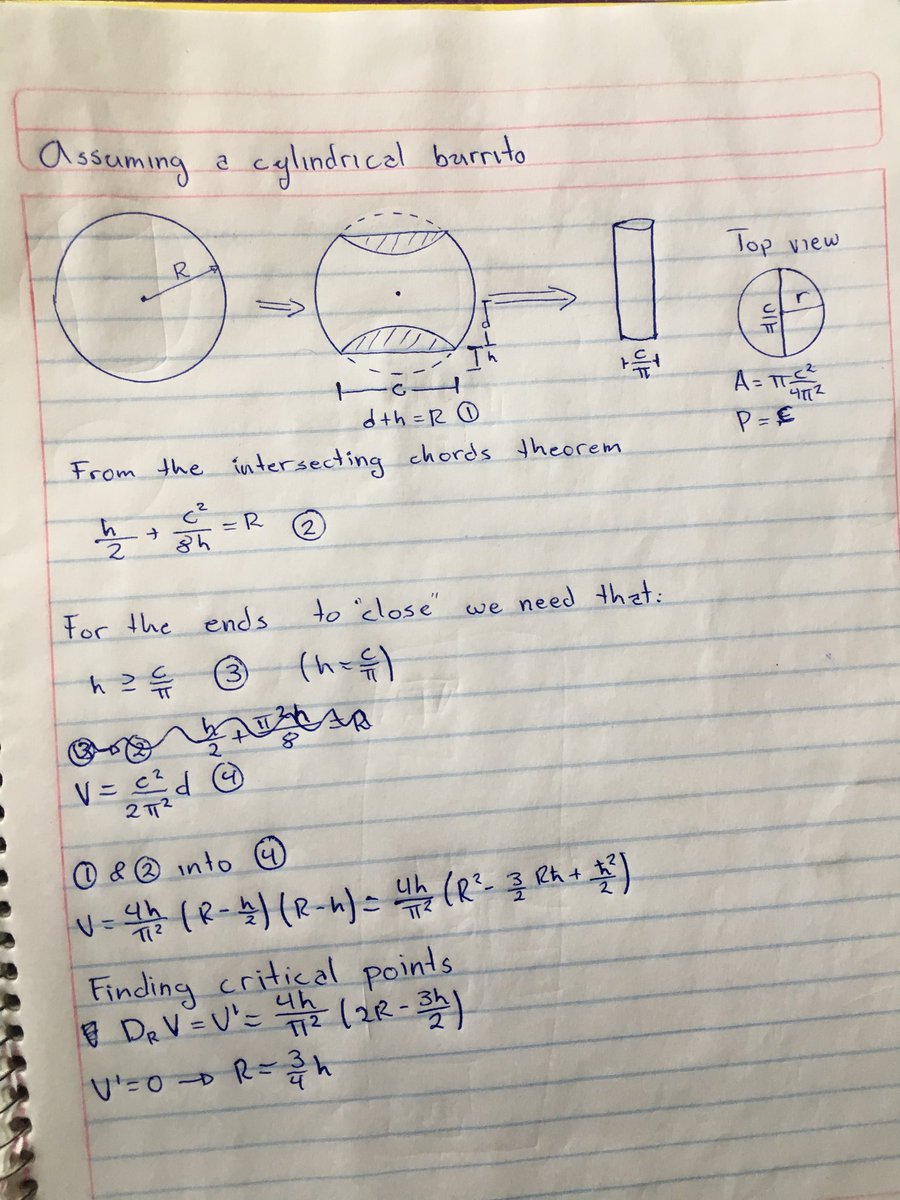 Assuming a cylindrical burrito
R
d
h
c
d+h=R ①
c/π
Top view
c/π
r
A = π c²/4π²
P = c
From the intersecting chords theorem
h/2 + c²/8h = R ②
For the ends to "close" we need that:
h ≥ c/π ③ (h = c/π)
③→② h/2 + π²h/8 = R
V = c²/2π² d ④
① & ② into ④
V = 4h/π² (R - h/2)(R-h) = 4h/π² (R² - 3/2 Rh + h²/2)
Finding critical points
D_R V = V' = 4h/π² (2R - 3h/2)
V'=0 → R = 3/4 h